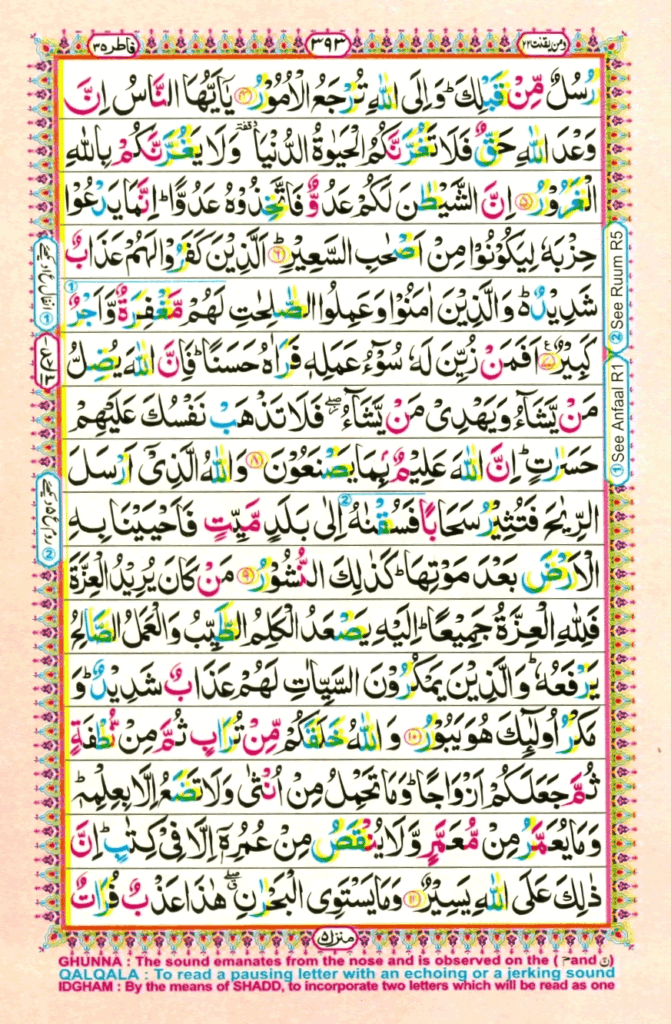 ومن يقنت ٢٢
٣٩٣
فاطر ٣٥
رُسُلٌ مِّنْ قَبْلِكَ ؕ وَاِلَى اللّٰهِ تُرْجَعُ الْاُمُوْرُ ﴿۴﴾ يٰۤاَيُّهَا النَّاسُ اِنَّ
وَعْدَ اللّٰهِ حَقٌّ فَلَا تَغُرَّنَّكُمُ الْحَيٰوةُ الدُّنْيَا ࣞ وَلَا يَغُرَّنَّكُمْ بِاللّٰهِ
الْغَرُوْرُ ﴿۵﴾ اِنَّ الشَّيْطٰنَ لَكُمْ عَدُوٌّ فَاتَّخِذُوْهُ عَدُوًّا ؕ اِنَّمَا يَدْعُوْا
حِزْبَهٗ لِيَكُوْنُوْا مِنْ اَصْحٰبِ السَّعِيْرِ ؕ ﴿۶﴾ اَلَّذِيْنَ كَفَرُوْا لَهُمْ عَذَابٌ
شَدِيْدٌ ؕ۬ وَالَّذِيْنَ اٰمَنُوْا وَعَمِلُوا الصّٰلِحٰتِ لَهُمْ مَّغْفِرَةٌ وَّاَجْرٌ
كَبِيْرٌ ﴿۷﴾ اَفَمَنْ زُيِّنَ لَهٗ سُوْٓءُ عَمَلِهٖ فَرَاٰهُ حَسَنًا ؕ فَاِنَّ اللّٰهَ يُضِلُّ
مَنْ يَّشَآءُ وَيَهْدِىْ مَنْ يَّشَآءُ ۖ فَلَا تَذْهَبْ نَفْسُكَ عَلَيْهِمْ
حَسَرٰتٍ ؕ اِنَّ اللّٰهَ عَلِيْمٌۢ بِمَا يَصْنَعُوْنَ ﴿۸﴾ وَاللّٰهُ الَّذِىْۤ اَرْسَلَ
الرِّيٰحَ فَتُثِيْرُ سَحَابًا فَسُقْنٰهُ اِلٰى بَلَدٍ مَّيِّتٍ فَاَحْيَيْنَا بِهِ
الْاَرْضَ بَعْدَ مَوْتِهَا ؕ كَذٰلِكَ النُّشُوْرُ ﴿۹﴾ مَنْ كَانَ يُرِيْدُ الْعِزَّةَ
فَلِلّٰهِ الْعِزَّةُ جَمِيْعًا ؕ اِلَيْهِ يَصْعَدُ الْكَلِمُ الطَّيِّبُ وَالْعَمَلُ الصَّالِحُ
يَرْفَعُهٗ ؕ وَالَّذِيْنَ يَمْكُرُوْنَ السَّيِّاٰتِ لَهُمْ عَذَابٌ شَدِيْدٌ ؕ وَ
مَكْرُ اُولٰٓئِكَ هُوَ يَبُوْرُ ﴿۱۰﴾ وَاللّٰهُ خَلَقَكُمْ مِّنْ تُرَابٍ ثُمَّ مِنْ نُّطْفَةٍ
ثُمَّ جَعَلَكُمْ اَزْوَاجًا ؕ وَمَا تَحْمِلُ مِنْ اُنْثٰى وَلَا تَضَعُ اِلَّا بِعِلْمِهٖ ؕ
وَمَا يُعَمَّرُ مِنْ مُّعَمَّرٍ وَّلَا يُنْقَصُ مِنْ عُمُرِهٖۤ اِلَّا فِىْ كِتٰبٍ ؕ اِنَّ
ذٰلِكَ عَلَى اللّٰهِ يَسِيْرٌ ﴿۱۱﴾ وَمَا يَسْتَوِى الْبَحْرٰنِ ۖ هٰذَا عَذْبٌ فُرَاتٌ
② See Ruum R5
① See Anfaal R1
منزل ٥
GHUNNA : The sound emanates from the nose and is observed on the ( م and ن )
QALQALA : To read a pausing letter with an echoing or a jerking sound
IDGHAM : By the means of SHADD, to incorporate two letters which will be read as one